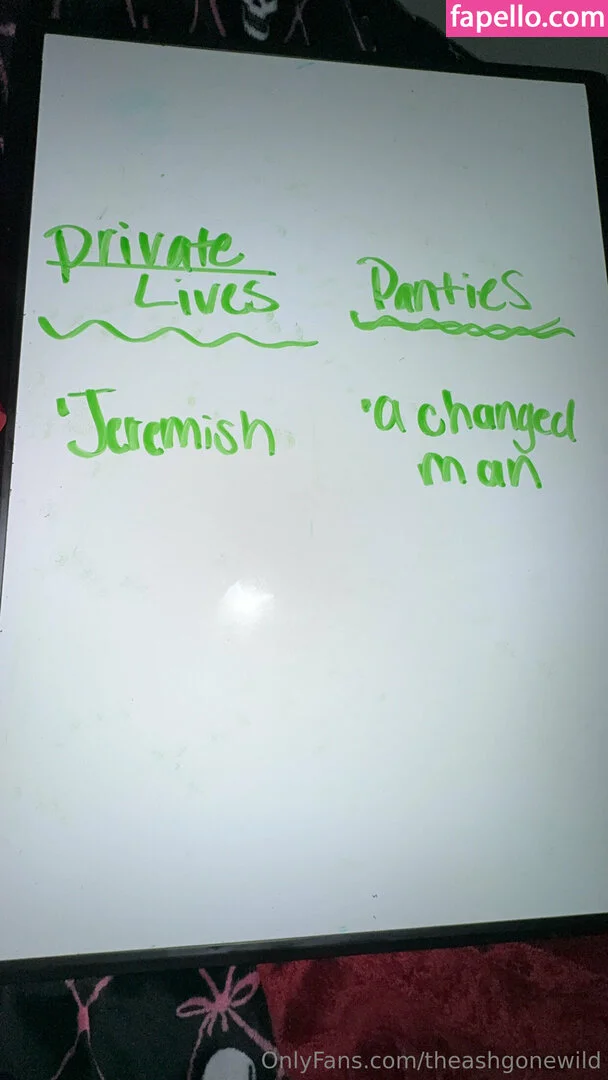 fapello.com
Private
Lives
Panties
'Jeremish
'a changed
man
OnlyFans.com/theashgonewild